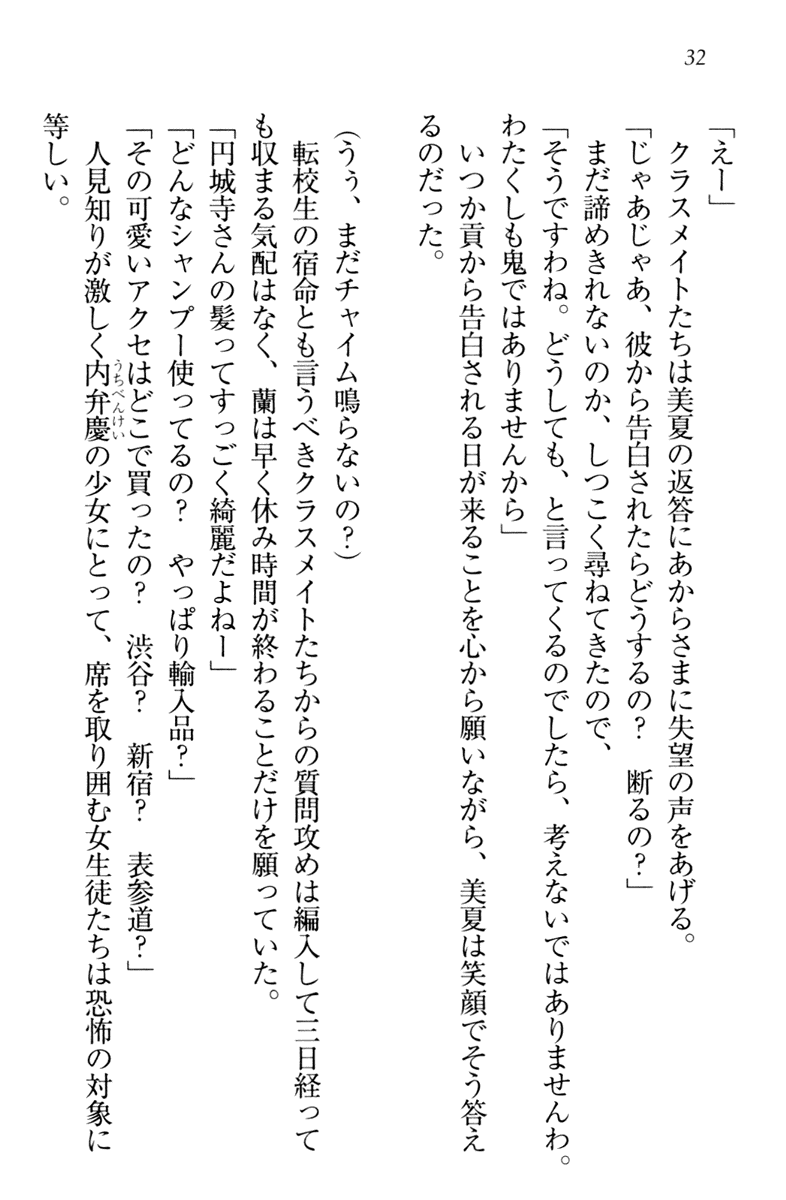 32
「えー」
クラスメイトたちは美夏の返答にあからさまに失望の声をあげる。
「じゃあじゃあ、彼から告白されたらどうするの？　断るの？」
まだ諦めきれないのか、しつこく尋ねてきたので、
「そうですわね。どうしても、と言ってくるのでしたら、考えないではありませんわ。
わたくしも鬼ではありませんから」
いつか貢から告白される日が来ることを心から願いながら、美夏は笑顔でそう答え
るのだった。
（うぅ、まだチャイム鳴らないの？）
転校生の宿命とも言うべきクラスメイトたちからの質問攻めは編入して三日経って
も収まる気配はなく、蘭は早く休み時間が終わることだけを願っていた。
「円城寺さんの髪ってすっごく綺麗だよねー」
「どんなシャンプー使ってるの？　やっぱり輸入品？」
「その可愛いアクセはどこで買ったの？　渋谷？　新宿？　表参道？」
人見知りが激しく内弁慶の少女にとって、席を取り囲む女生徒たちは恐怖の対象に
うちべんけい
等しい。